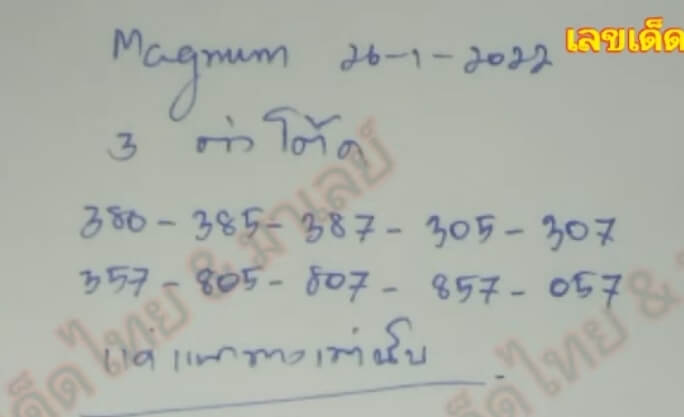 เลขเด็ด
Magnum 26-1-2022
3 ตัว โต๊ด
380 - 385 - 387 - 305 - 307
357 - 805 - 807 - 857 - 057
แค่แนวทางเท่านั้น
เด็ดไทย & มาเลย์
เด็ดไทย &